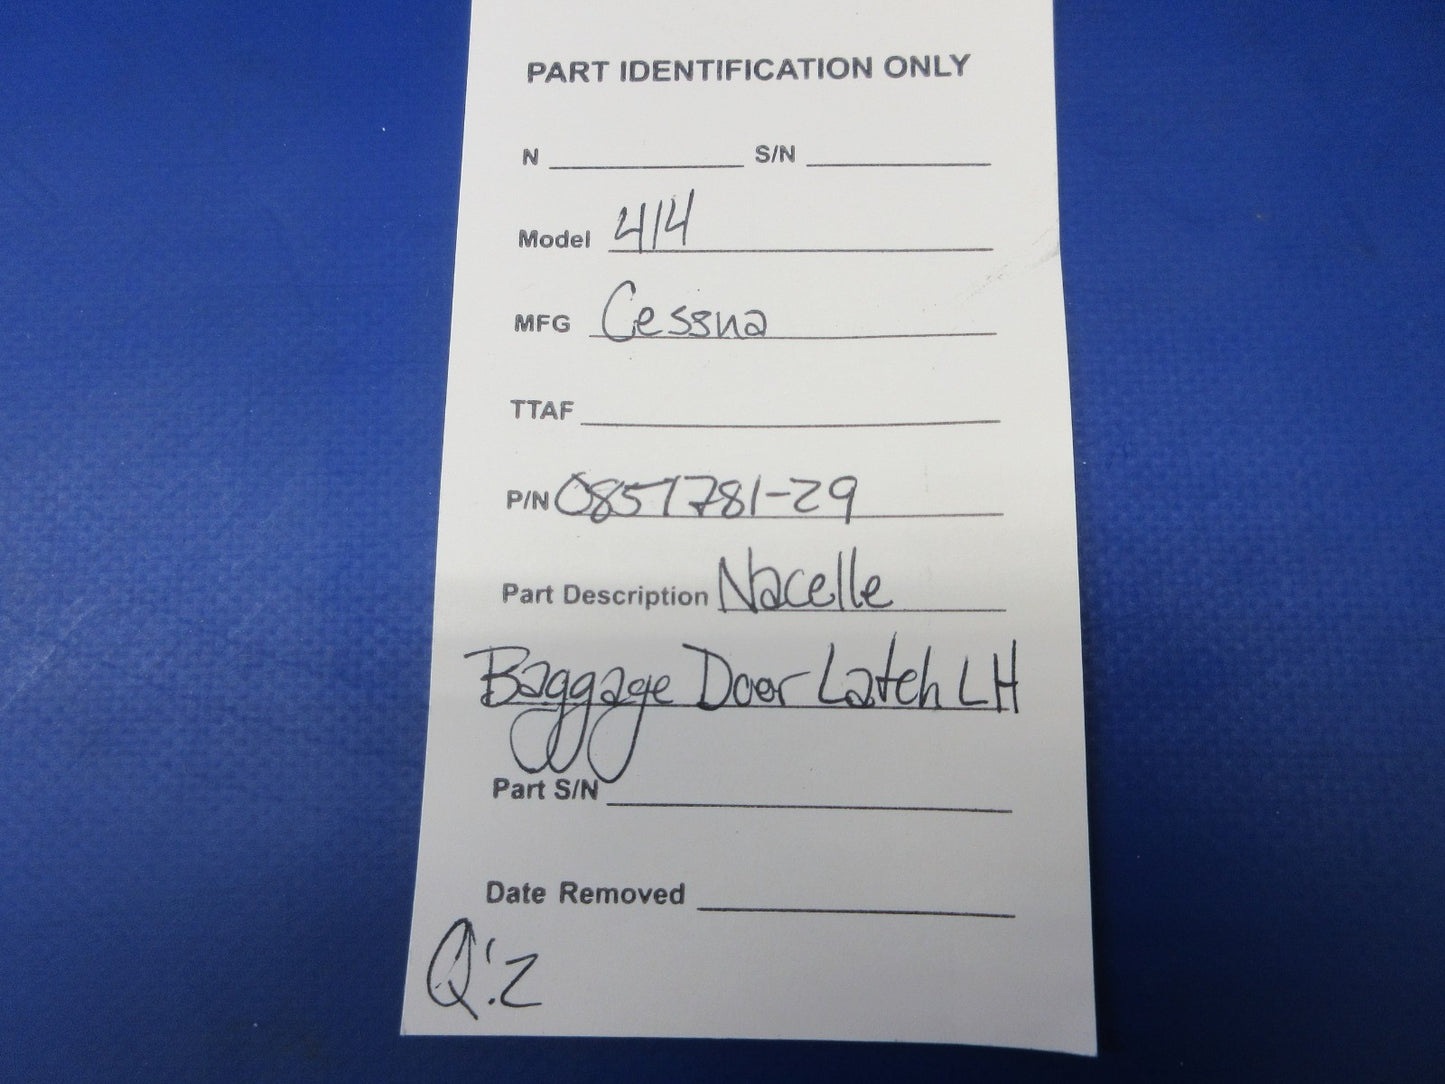 PART IDENTIFICATION ONLY
N S/N
Model 414
MFG Cessna
TTAF
P/N 0851781-29
Part Description Nacelle
Baggage Door Latch LH
Part S/N
Date Removed
Q:2